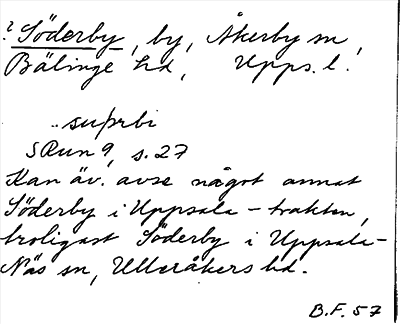 ? Söderby, by, Åkerby sn,
Bälinge hd, Upps. l.
..suþrbi
SRun 9, s. 27
Kan äv. avse något annat
Söderby i Uppsala-trakten,
troligast Söderby i Uppsala-
Näs sn, Ulleråkers hd.
B.F. 57